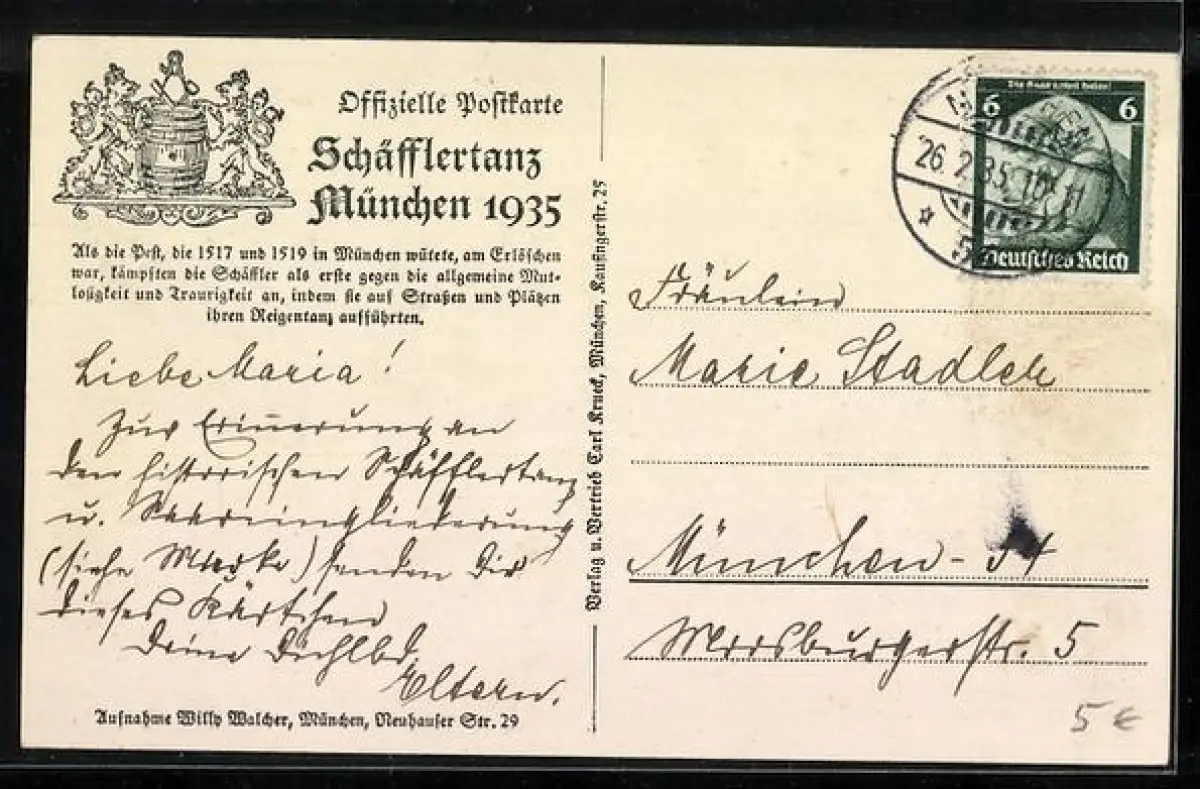 Offizielle Postkarte
Schäfflertanz
München 1935
Als die Pest, die 1517 und 1519 in München wütete, am Erlöschen
war, kämpften die Schäffler als erste gegen die allgemeine Mut-
losigkeit und Traurigkeit an, indem sie auf Straßen und Plätzen
ihren Reigentanz aufführten.
Liebe Maria!
Zur Erinnerung an
den historischen Schäfflertanz
u. Saareingliederung
(siehe Marke) senden dir
dieses Kärtchen
Deine
Eltern.
Aufnahme Willy Walcher, München, Neuhauser Str. 29
Verlag u. Vertrieb Carl Krueck, München, Kaufingerstr. 25
26.2.35.10-11
5
6 6
Deutsches Reich
Fräulein
Marie Stadler
München-
Moosburgerstr. 5
5 €